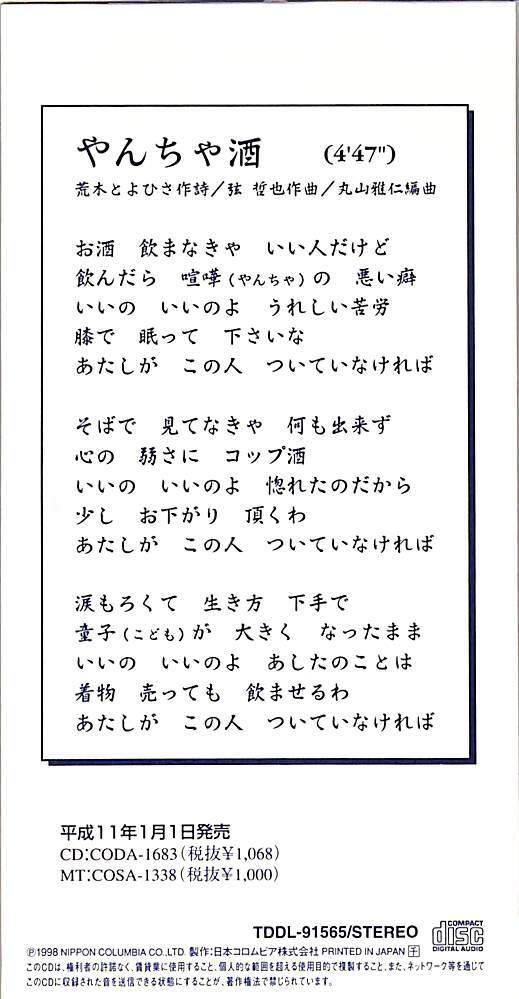 やんちゃ酒 (4'47")
荒木とよひさ作詩／弦 哲也作曲／丸山雅仁編曲
お酒 飲まなきゃ いい人だけど
飲んだら 喧嘩(やんちゃ)の 悪い癖
いいの いいのよ うれしい苦労
膝で 眠って 下さいな
あたしが この人 ついていなければ
そばで 見てなきゃ 何も出来ず
心の 弱さに コップ酒
いいの いいのよ 惚れたのだから
少し お下がり 頂くわ
あたしが この人 ついていなければ
涙もろくて 生き方 下手で
童子(こども)が 大きく なったまま
いいの いいのよ あしたのことは
着物 売っても 飲ませるわ
あたしが この人 ついていなければ
平成11年1月1日発売
CD:CODA-1683(税抜¥1,068)
MT:COSA-1338(税抜¥1,000)
TDDL-91565/STEREO
COMPACT disc DIGITAL AUDIO
Ⓟ1998 NIPPON COLUMBIA CO.,LTD. 製作:日本コロムビア株式会社 PRINTED IN JAPAN 千
このCDは、権利者の許諾なく、賃貸業に使用すること、個人的な範囲を超える使用目的で複製すること、また、ネットワーク等を通じて
このCDに収録された音を送信できる状態にすることが、著作権法で禁じられています。